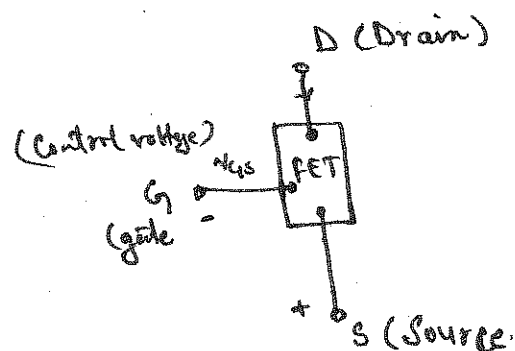 D (Drain)
(Control voltage)
VGS
FET
G
(gate
-
+
S (Source.